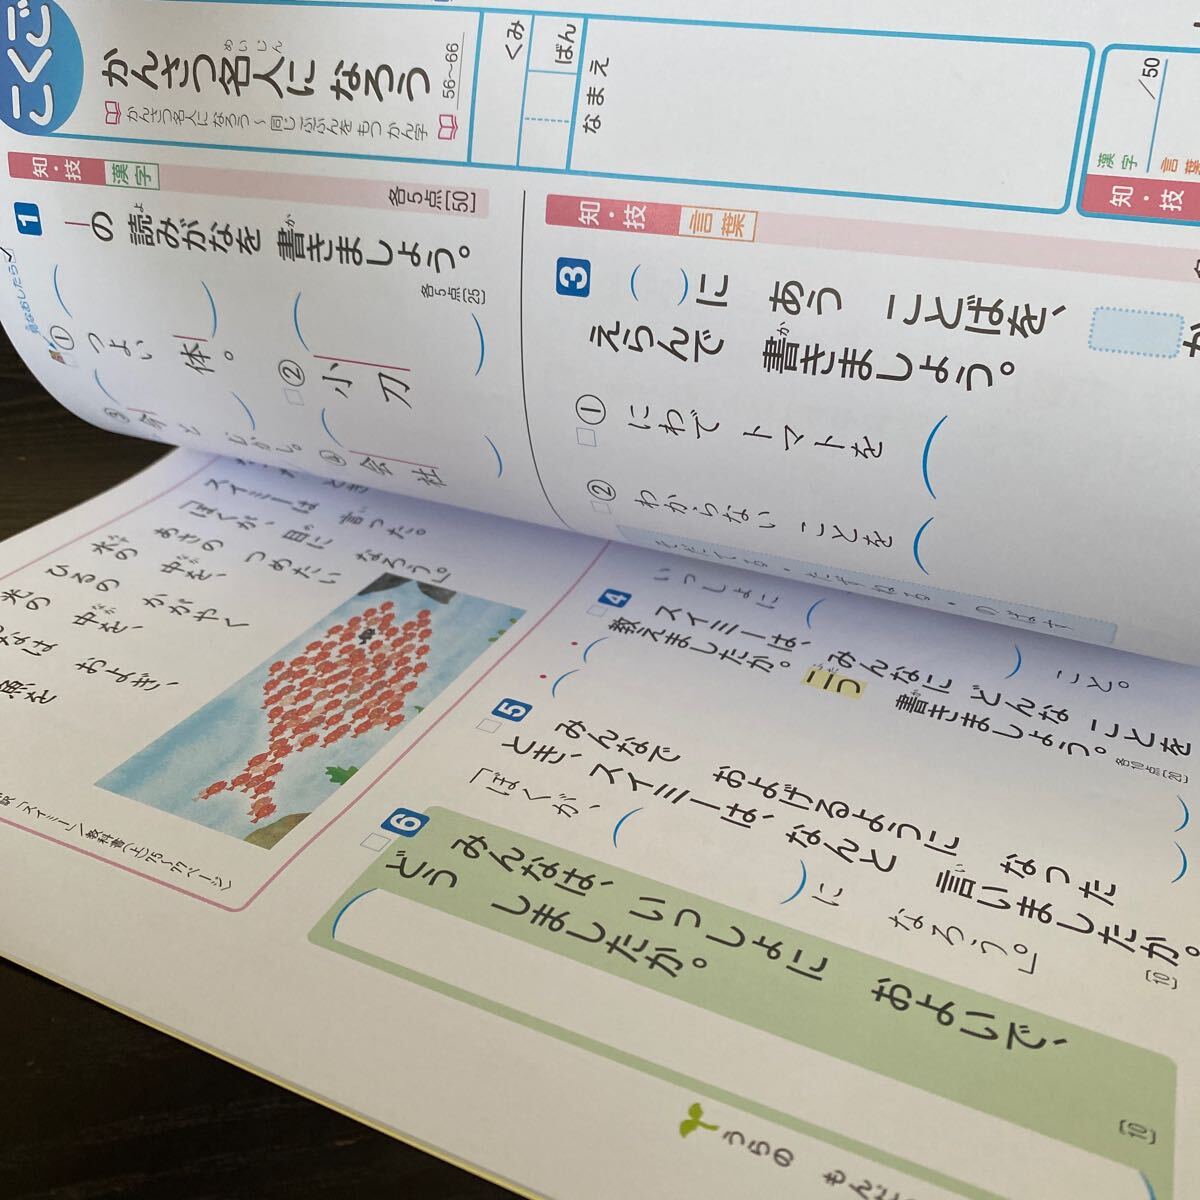 こくご
かんさつ名人に なろう
めいじん
かんさつ名人に なろう～同じ ぶぶんを もつ かん字
56～66
くみ
ばん
なまえ
知・技
漢字
各5点[50]
1
の 読みがなを 書きましょう。
よ
か
各5点[25]
①
つよい 体。
②
小刀
③
今
④
会社
知・技
言葉
3
( )に あう ことばを、
えらんで 書きましょう。
か
①
にわで トマトを
②
わからない ことを
漢字
/50
言葉
知・技
スイミーは 言った。
「ぼくが、目に なろう。」
あさの つめたい
水の 中を、
ひるの かがやく
光の 中を、
みんなは およぎ、
「スイミー」/教科書(上)75～77ページ
4
スイミーは、みんなに どんな ことを
教えましたか。二つ 書きましょう。
各10点[20]
いっしょに
こと。
5
みんなで およげるように なった
とき、スイミーは、なんと 言いましたか。
[10]
「ぼくが、
に なろう。」
6
みんなは、いっしょに およいで、
どう しましたか。
[10]
うらの